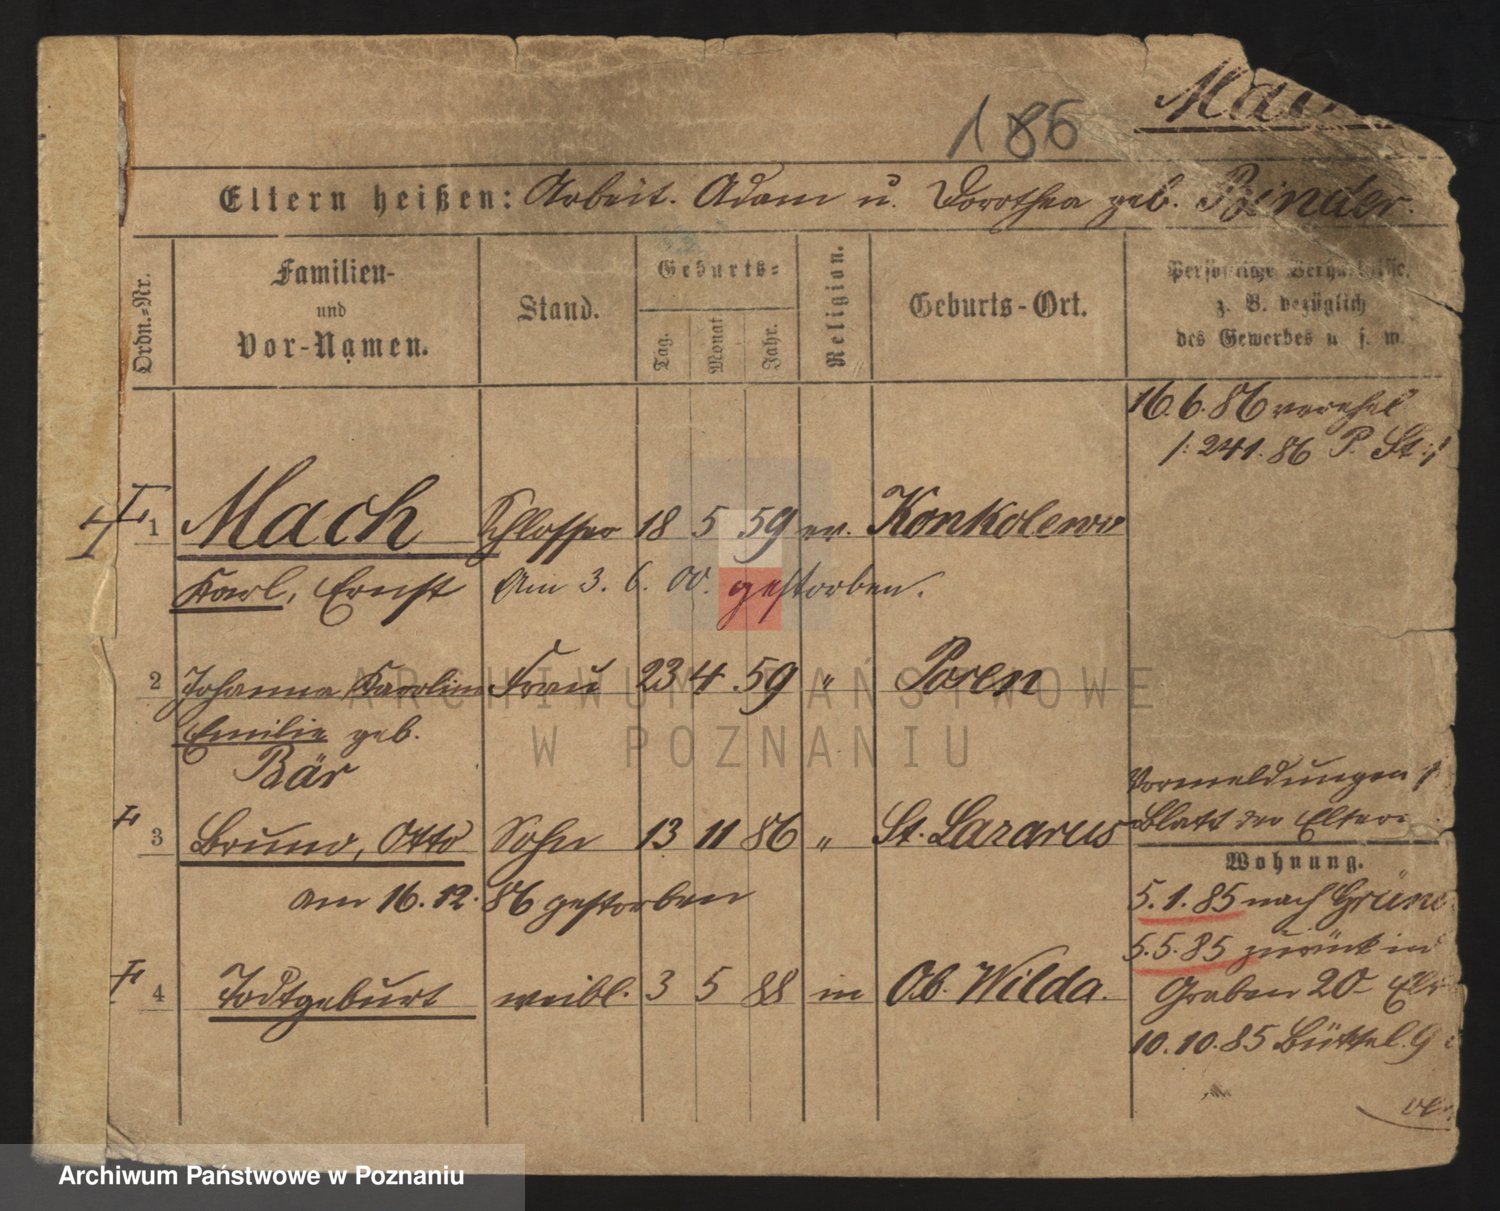 186
Eltern heißen: Arbeit. Adam u. Dorothea geb. Binder.
Ordn.-Nr.
Familien-
und
Vor-Namen.
Stand.
Geburts-
Tag. Monat Jahr.
Religion.
Geburts-Ort.
Persönliche Verhältnisse,
z. B. bezüglich
des Gewerbes u. s. w.
16.6.86 verehel
/: 241.86 P. St :/
1 Mach Schlosser 18 5 59 ev. Konkolewo
Karl, Ernst Am 3. 6. 00. gestorben.
2 Johanna Karolina Frau 23 4 59 " Posen
Emilie geb.
Bär
Vormeldungen
Blatt der Eltern
3 Bruno, Otto Sohn 13 11 86 " St. Lazarus
am 16. 12. 86 gestorben
4 Todtgeburt weibl. 3 5 88 in Ob. Wilda.
Wohnung.
5.1.85 nach
5.5.85 zurück
Graben 20
10.10.85 Büttel
ARCHIWUM PAŃSTWOWE
W POZNANIU
Archiwum Państwowe w Poznaniu